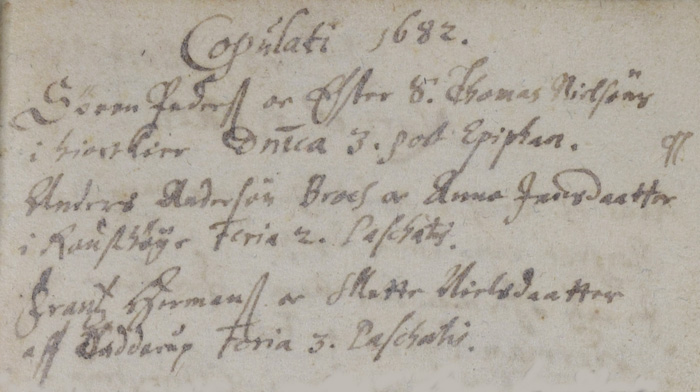 Copulati 1682.
Sören Pederß oc Ester S. Thomas Nielsöns
i hiortkier Dnīca 3. post Epiphan.
Anders Andersön Broch oc Anna Jensdaatter
i Feria 2. Paschatis.
Frantz Hermanß oc Mette Nielsdaatter
aff Feria 3. Paschatis.